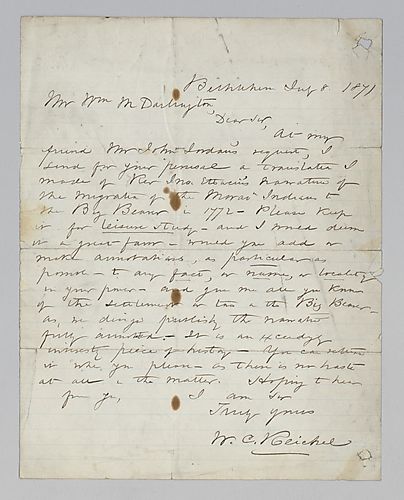 Bethlehem July 8. 1871
Mr Wm M Darlington,
Dear Sir,
At my
friend Mr John Jordan's request, I
send for your perusal a translation I
made of Rev Jno. Narrative of
the Migration of the Morav Indians to
the Big Beaver in 1772 - Please keep
it for leisure study - and I would deem
it a great favor - would you add or
make annotations, as particular as
possible - to any fact, or name, or locality
in your power - and give me all you know
of the settlement on the Big Beaver -
as, we design publish the narrative
fully annotated - It is an exceedingly
interesting piece of history - You can return
it when you please - as there is no haste
at all in the matter. Hoping to hear
from you, I am Sir
Truly yours
W. C. Reichel